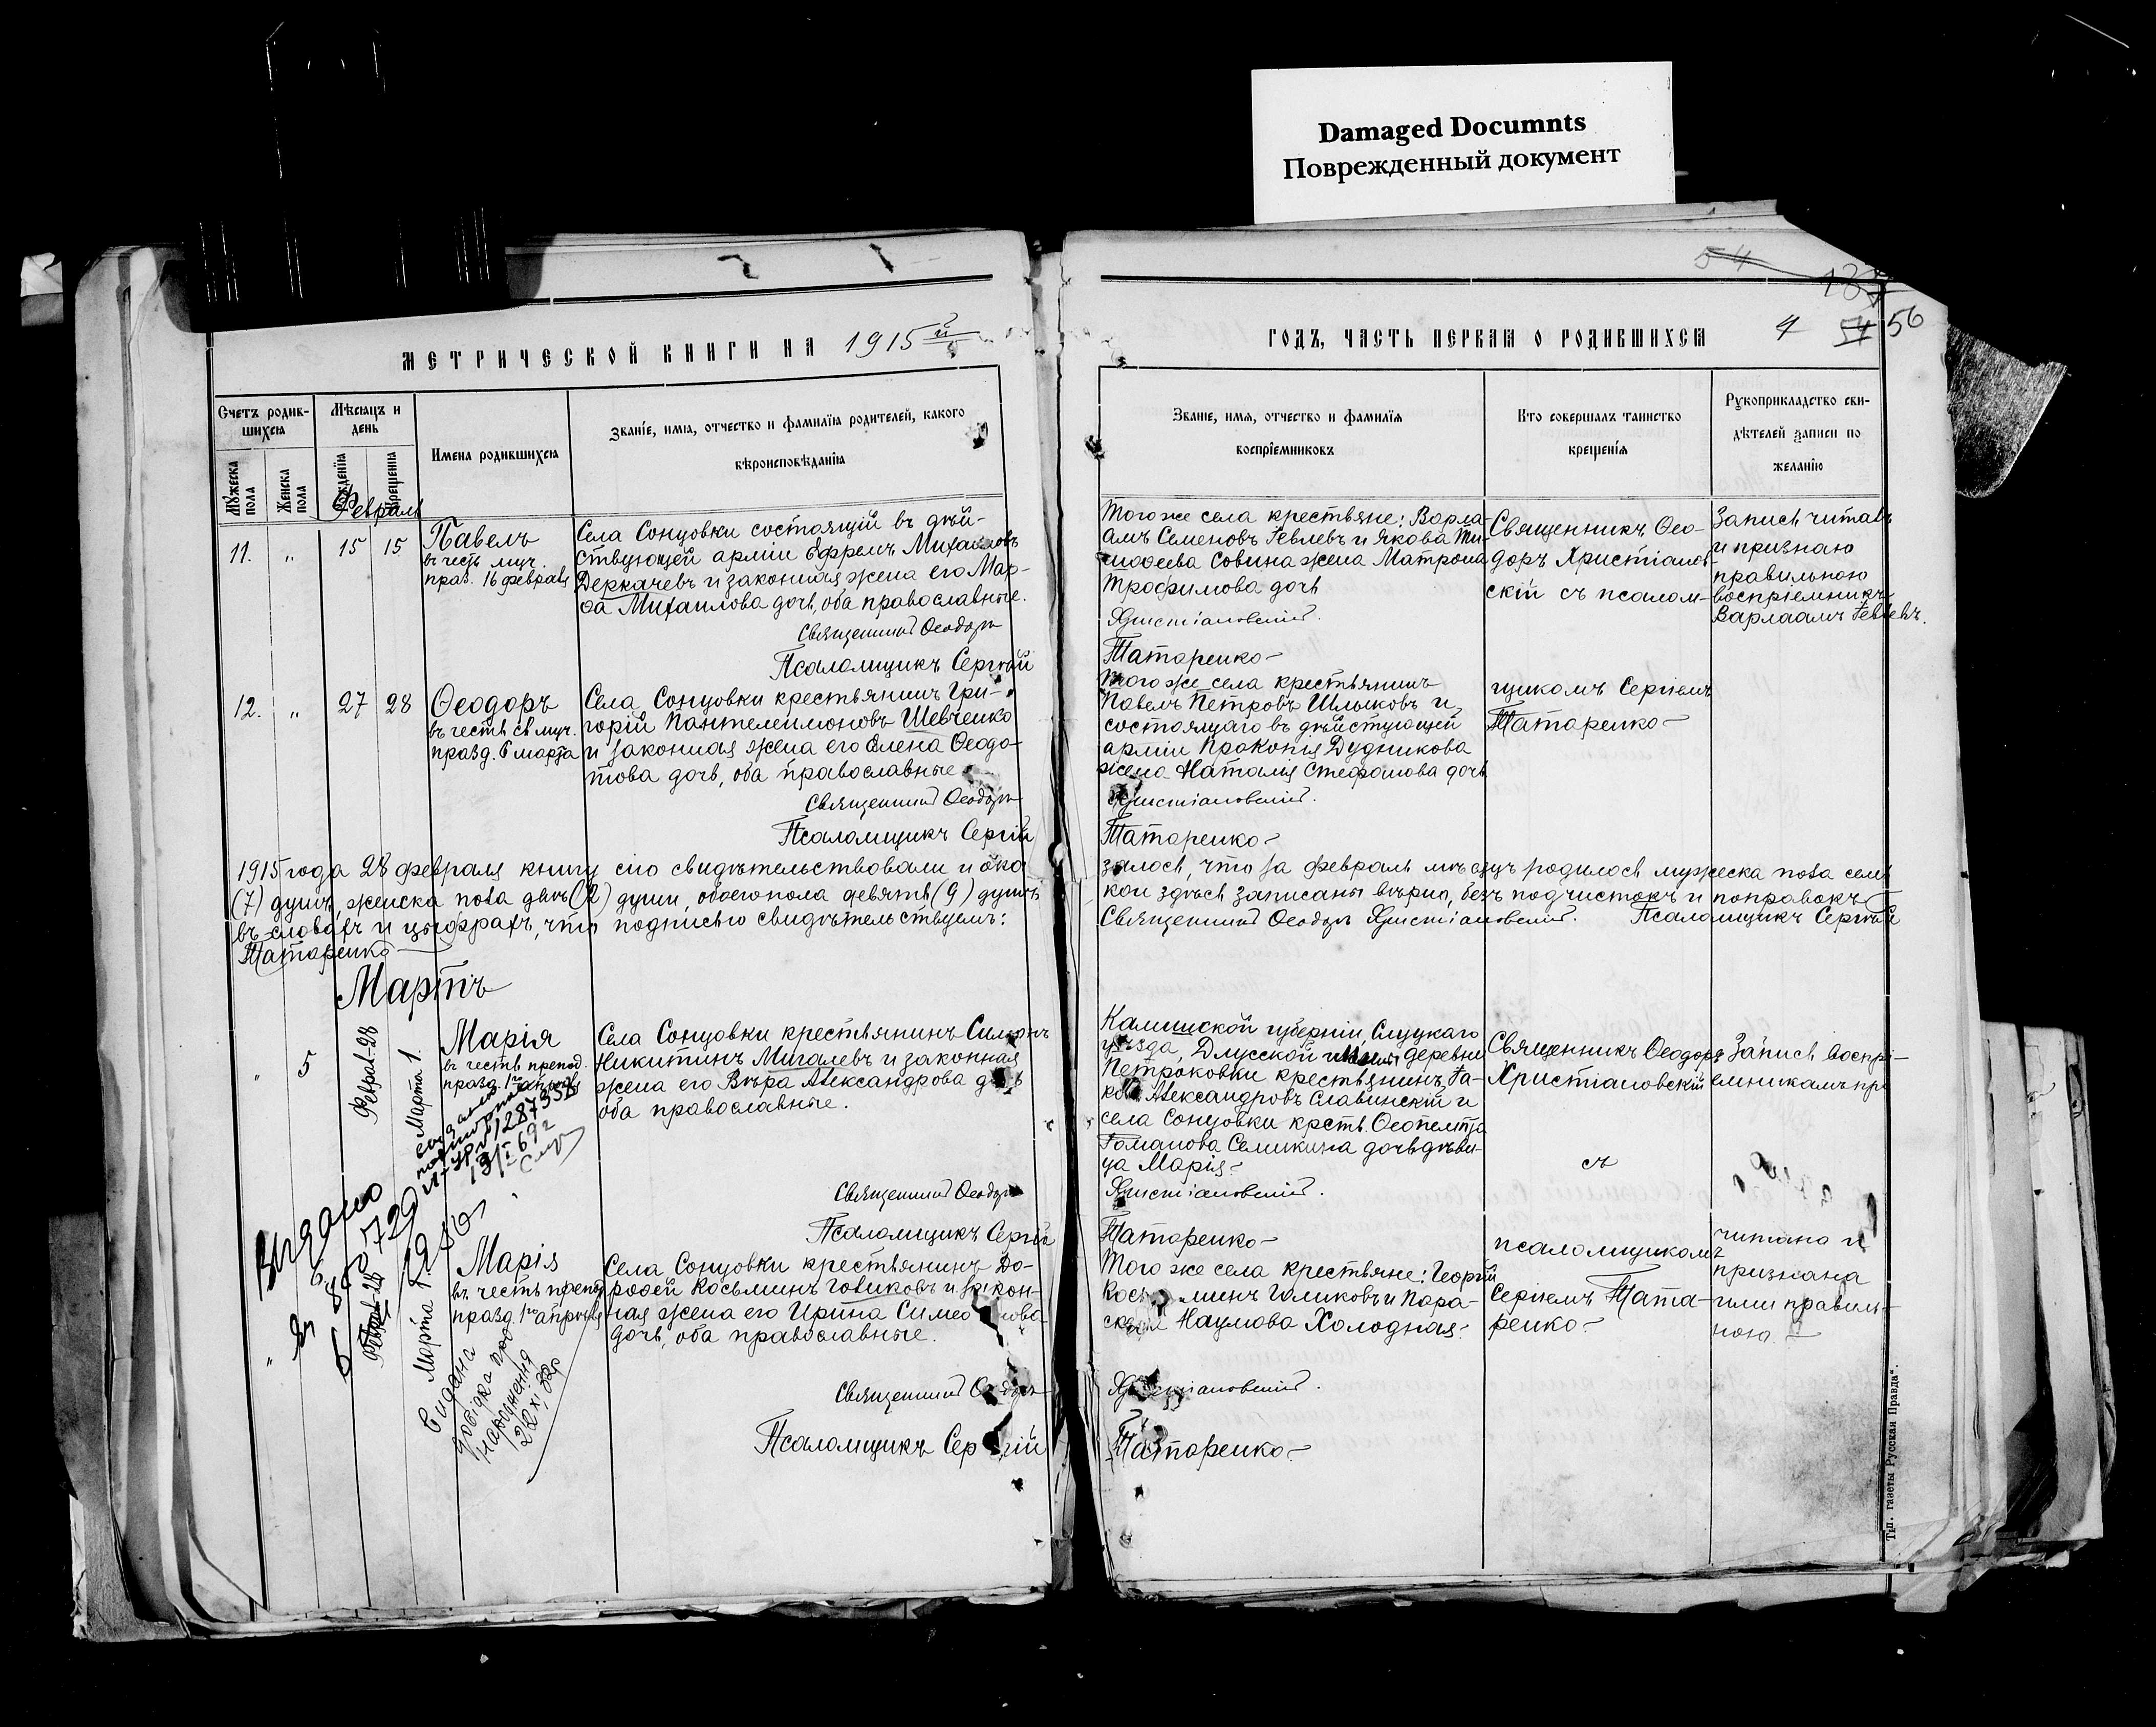 Damaged Documnts
Поврежденный документ
54
187
МЕТРИЧЕСКОЙ КНИГИ НА 1915 й
ГОДЪ, ЧАСТЬ ПЕРВАЯ О РОДИВШИХСЯ
4 54 56
Счетъ родив-
шихся
Мѣсяцъ и
день
Имена родившихся
Званіе, имя, отчество и фамилія родителей, какого
вѣроисповѣданія
Мужеска пола
Женска пола
Рожденія
Крещенія
Званіе, имя, отчество и фамилія
воспріемниковъ
Кто совершалъ таинство
крещенія
Рукоприкладство сви-
дѣтелей записи по
желанію
Февраль
11. " 15 15
Павелъ
въ честь муч.
праз. 16 февраля
Села Сонцовки состоящій въ дѣй-
ствующей арміи Ефремъ Михайловъ
Деркачевъ и законная жена его Мар-
ѳа Михаилова дочь, оба православные.
Священникъ Ѳеодоръ
Псаломщикъ Сергѣй
Того же села крестьяне: Варла-
амъ Семеновъ Ревлевъ и Якова Ти-
моѳеева Совина жена Матрона
Трофимова дочь
Христіановскій.
Татаренко
Священникъ Ѳео-
доръ Христіанов-
скій съ псалом-
Запись читалъ
и признаю
правильною
воспріемникъ
Варлаамъ Ревлевъ.
12. " 27 28
Ѳеодоръ
въ честь св. муч.
празд. 6 марта
Села Сонцовки крестьянинъ Гри-
горій Пантелеимоновъ Шевченко
и законная жена его Елена Ѳеодо-
това дочь, оба православные
Священникъ Ѳеодоръ
Псаломщикъ Сергій
Того же села крестьянинъ
Павелъ Петровъ Шлыковъ и
состоящаго въ дѣйстующей
арміи Прокопія Дудникова
жена Наталія Стефанова дочь
Христіановскій.
Татаренко
щикомъ Сергіемъ
Татаренко
1915 года 28 февраля книгу сію свидѣтельствовали и ока
залось, что за февраль мѣсяцъ родилось мужеска пола семь
(7) душъ, женска пола двѣ (2) души, обоего пола девять (9) душъ
кои здѣсь записаны вѣрно, безъ подчистокъ и поправокъ
въ словахъ и цыфрахъ, что подписью свидѣтельствуемъ:
Священникъ Ѳеодоръ Христіановскій. Псаломщикъ Сергѣй
Татаренко
Мартъ
" 5 Феврал-28 Марта 1.
Марія
въ честь препод.
празд. 1го апрѣля
Села Сонцовки крестьянинъ Симонъ
Никитинъ Мигалевъ и законная
жена его Вѣра Александрова дочь
оба православные.
Священникъ Ѳеодоръ
Псаломщикъ Сергій
Слуцкаго
уѣзда, деревни
Петроковки крестьянинъ
Александровъ Славинскій и
села Сонцовки крсть.
Романова Семикина дочь дѣви-
ца Марія
Христіановскій.
Татаренко
Священникъ Ѳеодоръ
Христіановскій
съ
Запись воспрі-
емникамъ пр
13/I 69 г
Выдано
1950
" 6 Феврал-28 Марта 1
Марія
въ честь препод
празд. 1го апрѣля
Села Сонцовки крестьянинъ До-
роѳей Косьминъ Голиковъ и закон-
ная жена его Ирина Симео нова
дочь, оба православные.
Священникъ Ѳеодоръ
Псаломщикъ Сергій
Того же села крестьяне: Георгій
Косьминъ Голиковъ и Пара-
скева Наумова Холодная.
Христіановскій.
Татаренко
псаломщикомъ
Сергіемъ Тата-
ренко
читана и
признана
ими правиль-
ною.
Видана
довідка про
народження
22 XI 32р
Тип. газеты Русская Правда".